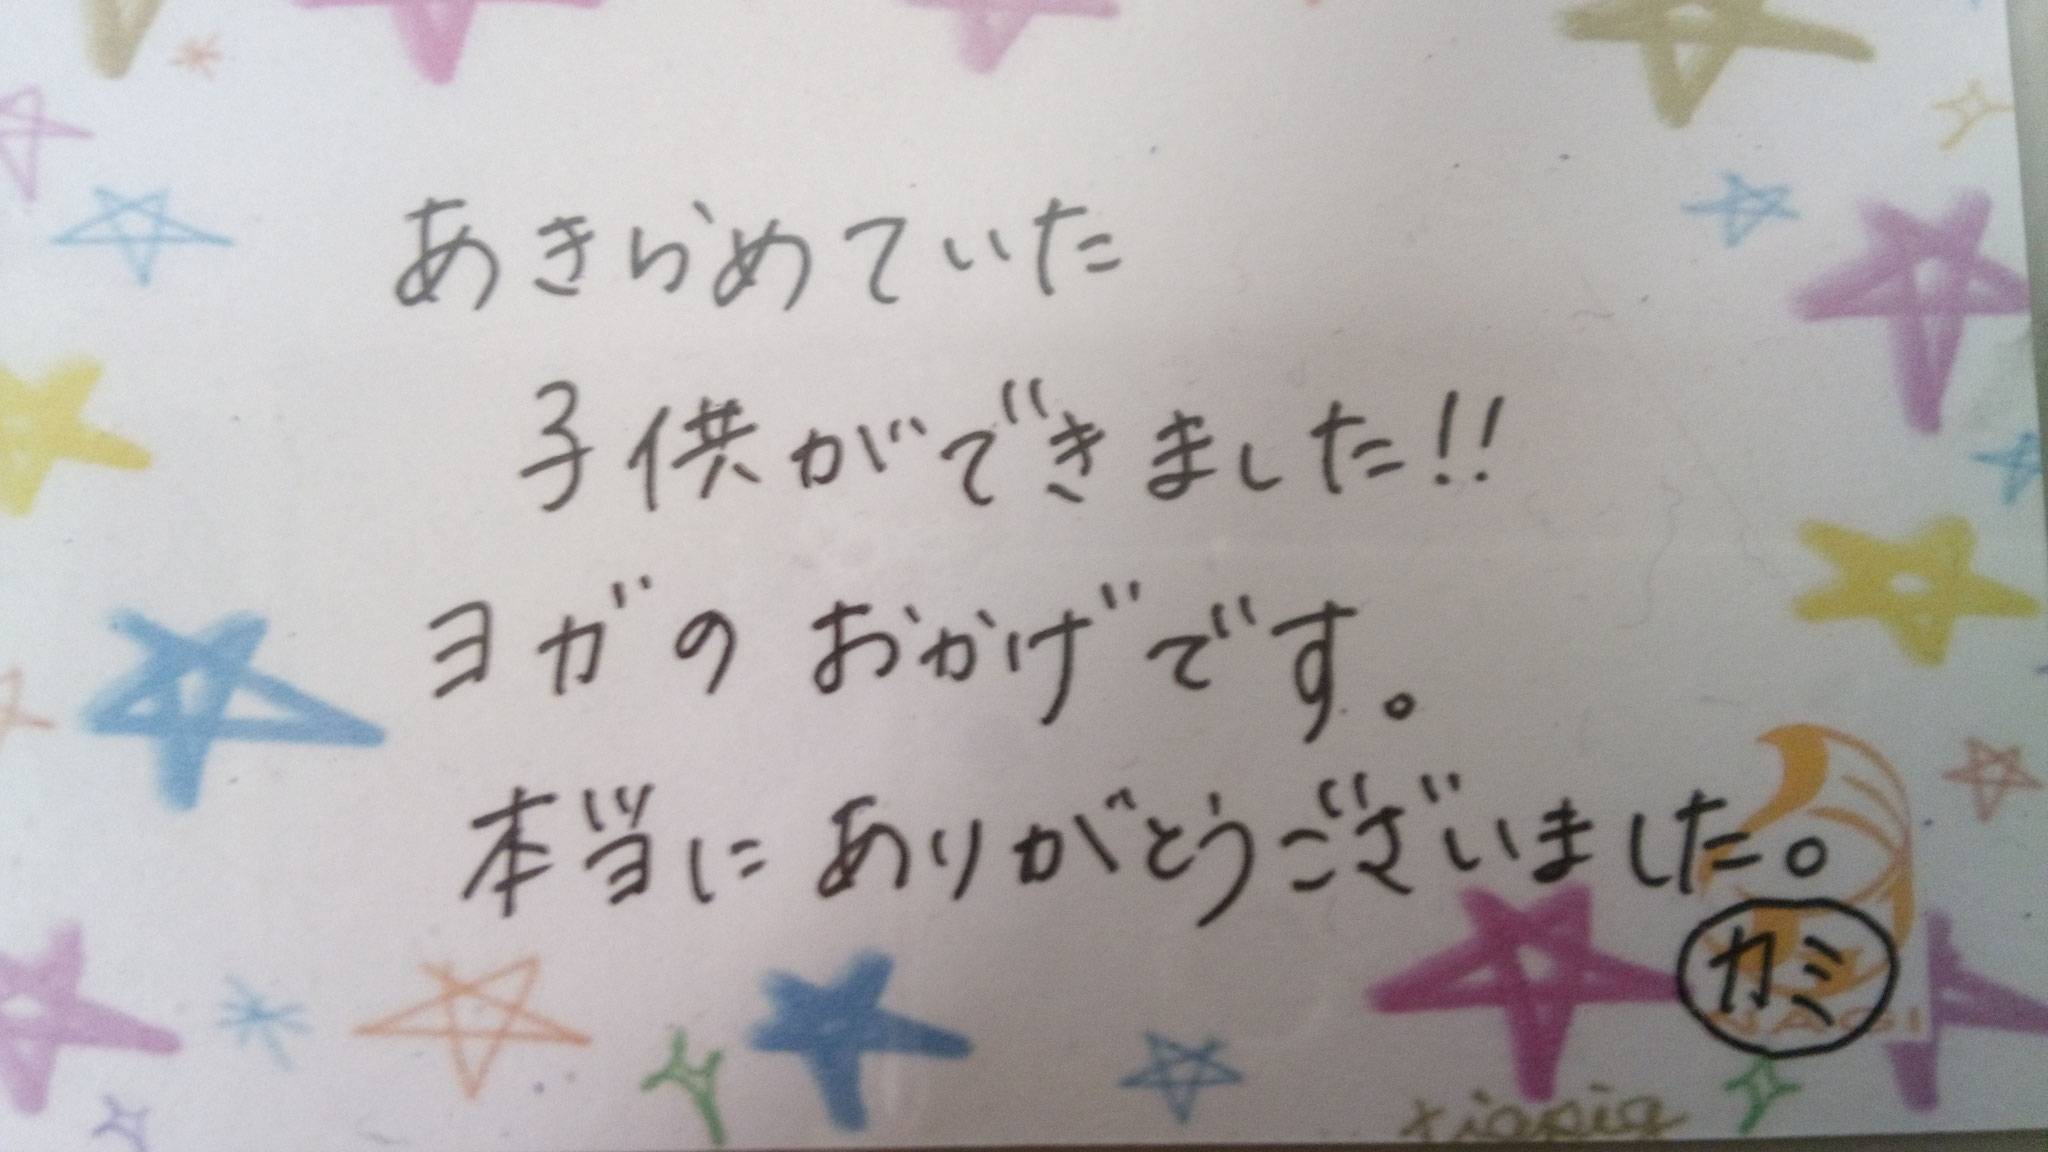 あきらめていた
子供ができました!!
ヨガのおかげです。
本当にありがとうございました。
カミ
NAGI